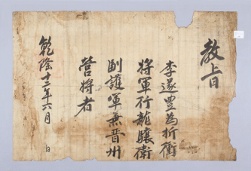 敎旨
李遂豊為折衝
將軍行龍驤衛
副護軍兼晋州
營將者
乾隆十三年六月　日